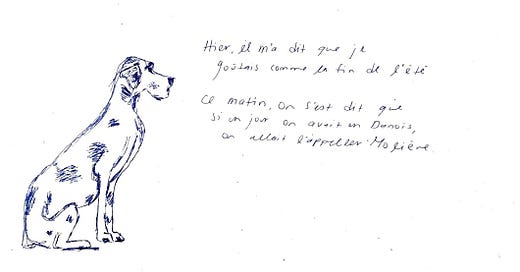 Hier, il m'a dit que je
goûtais comme la fin de l'été
Ce matin, on s'est dit que
si un jour on avait un Danois,
on allait l'appeller Molière.